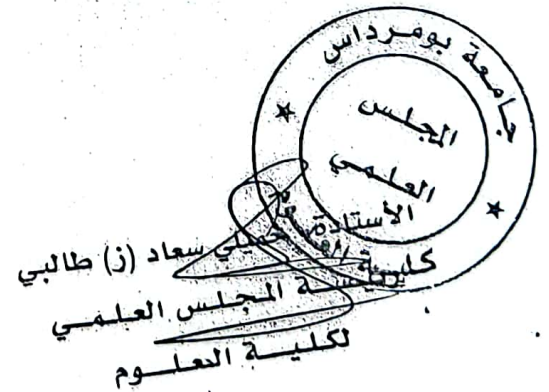 جامعة بومرداس
المجلس
العلمي
كلية
الأستاذة سعاد (ز) طالبي
رئيسة المجلس العلمي
لكلية العلوم